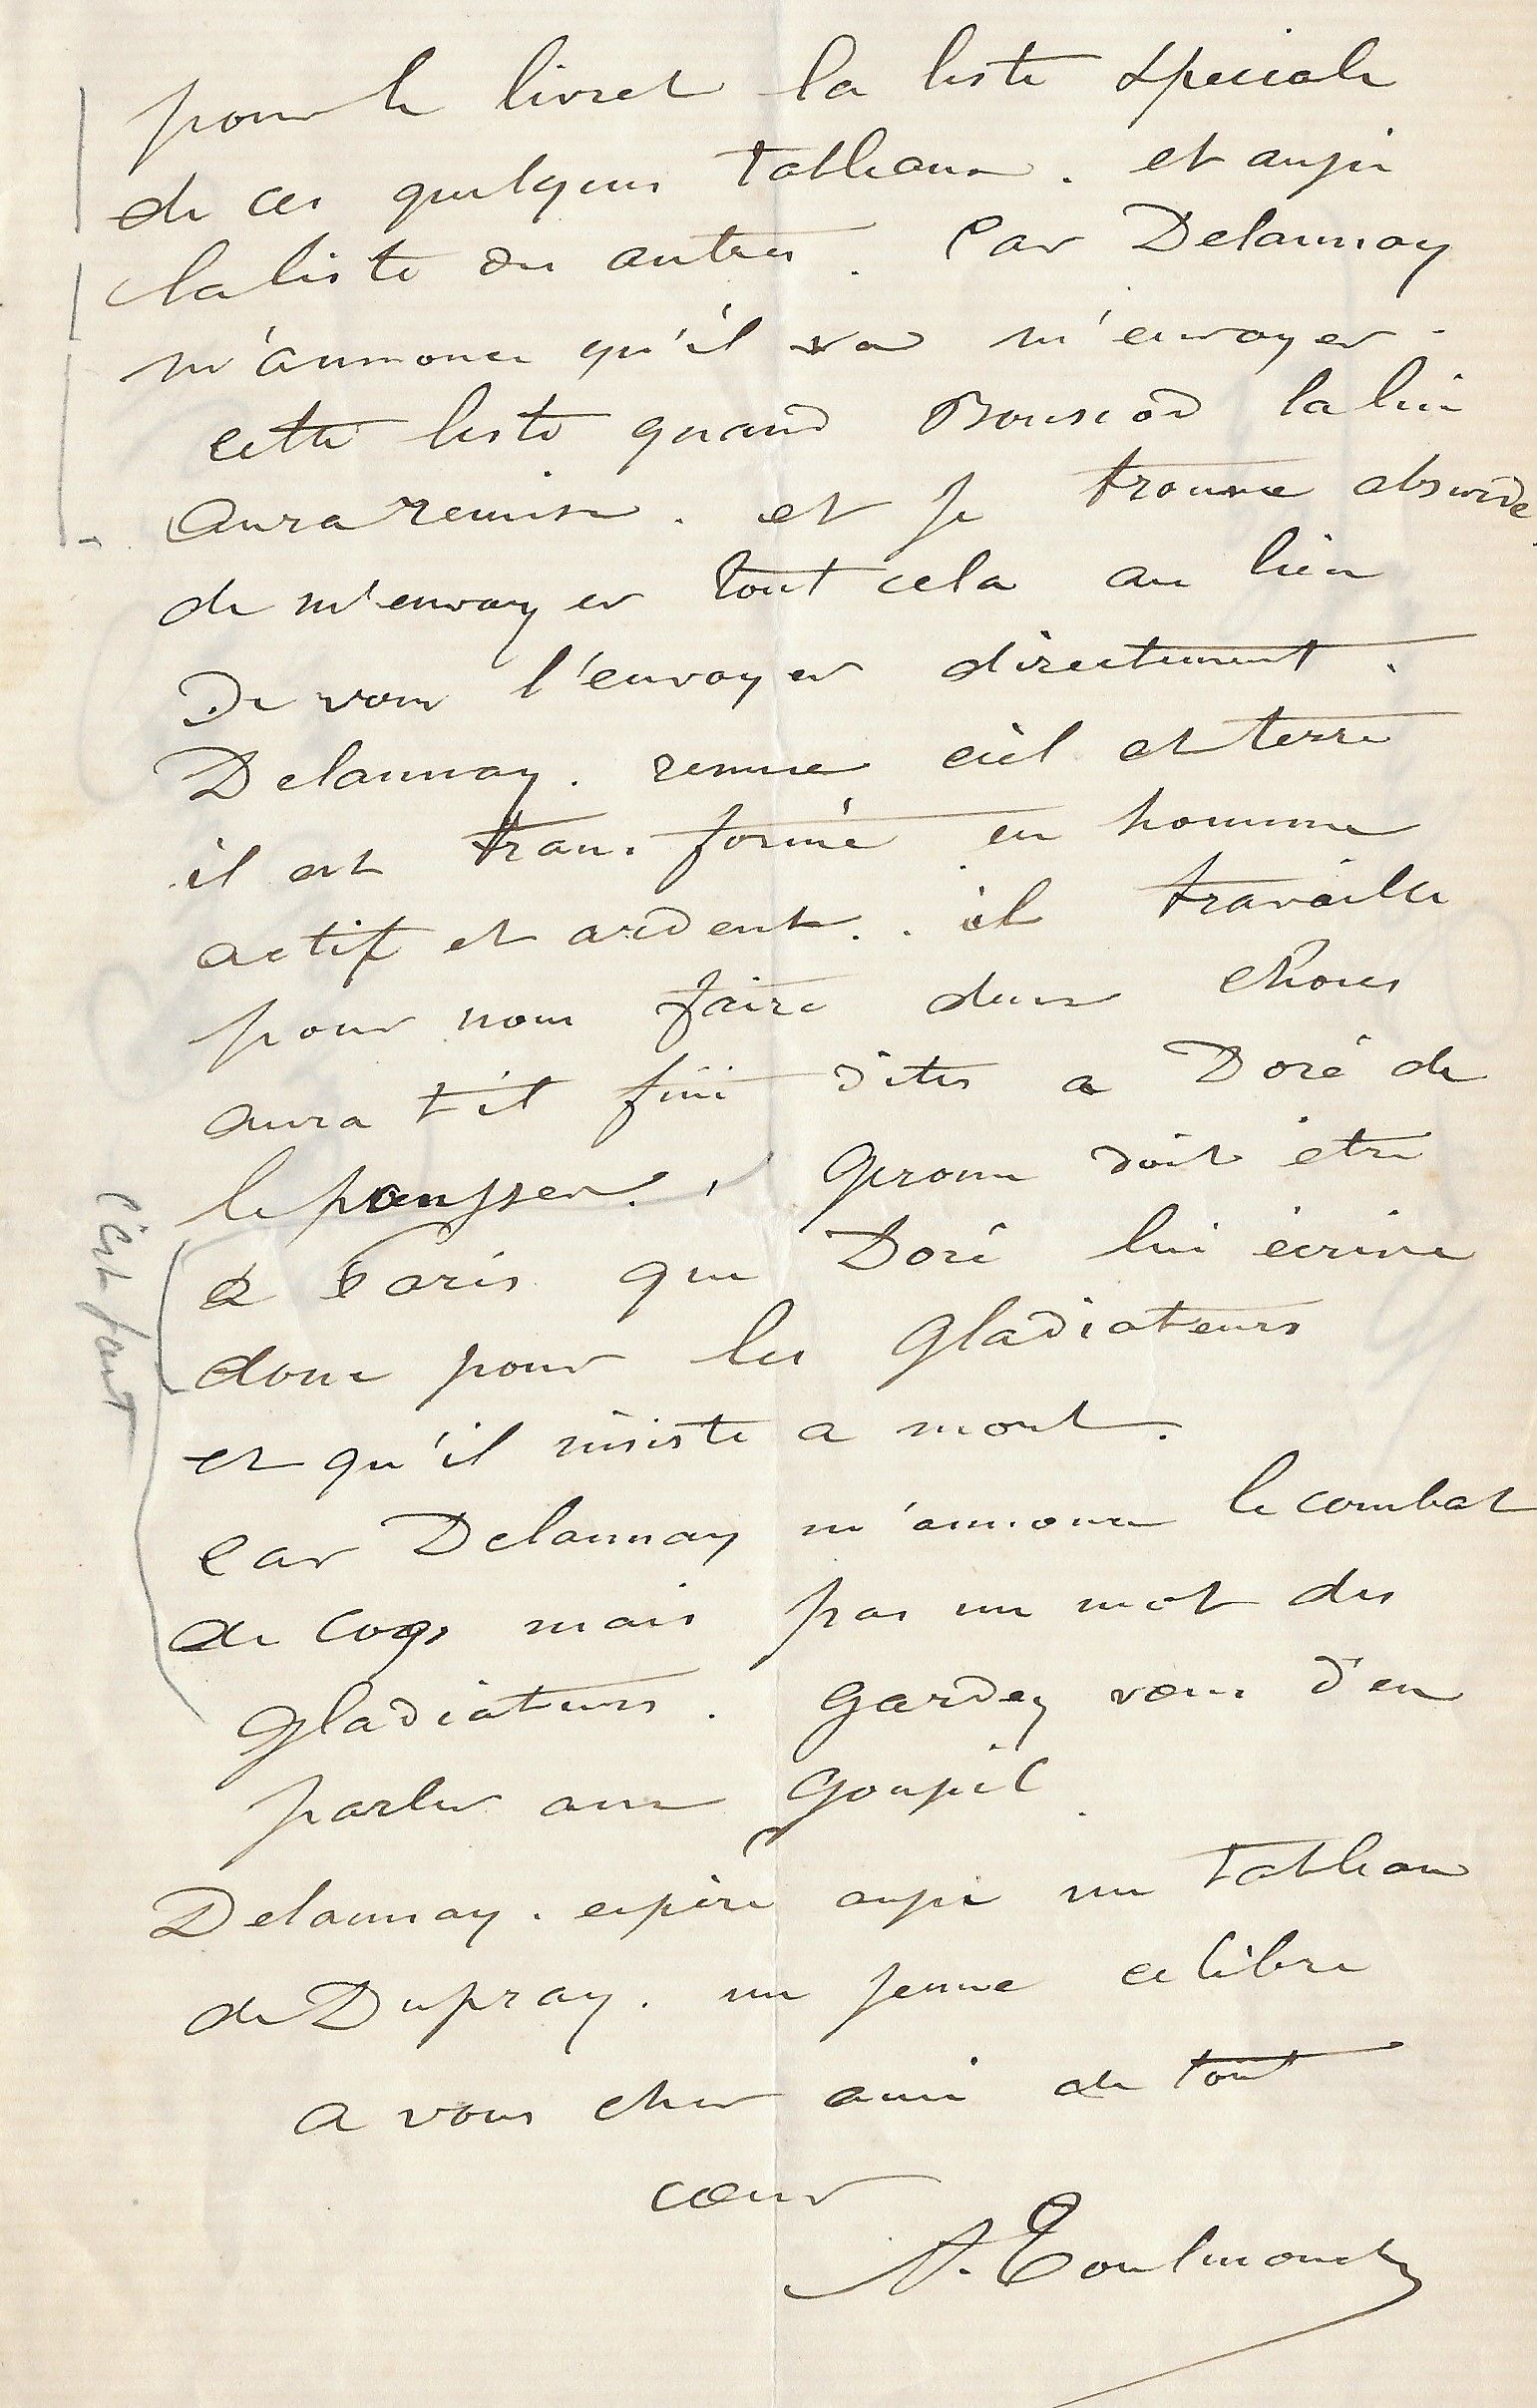 pour le livret la liste speciale
de ces quelques tableaux. et aussi
la liste des autres. Car Delaunay
m'annonce qu'il va m'envoyer.
cette liste quand Boussod la lui
aura remise. et je trouve absurde
de m'envoyer tout cela au lieu
De vous l'envoyer directement.
Delaunay. remue ciel et terre
il est transformé en homme
actif et ardent.. il travaille
pour nous faire deux choses
aura t'il fini dites a Doré de
le pousser. Gerome doit être
à Paris que Doré lui écrive
donc pour les Gladiateurs
et qu'il insiste a mort.
car Delaunay m'annonce le combat
de coqs mais pas un mot des
Gladiateurs. Gardez vous d'en
parler aux Goupil.
Delaunay. espère aussi un tableau
de Dupray. un jeune celibre
a vous cher ami de tout
coeur
A. Toulmouche
c'est fait